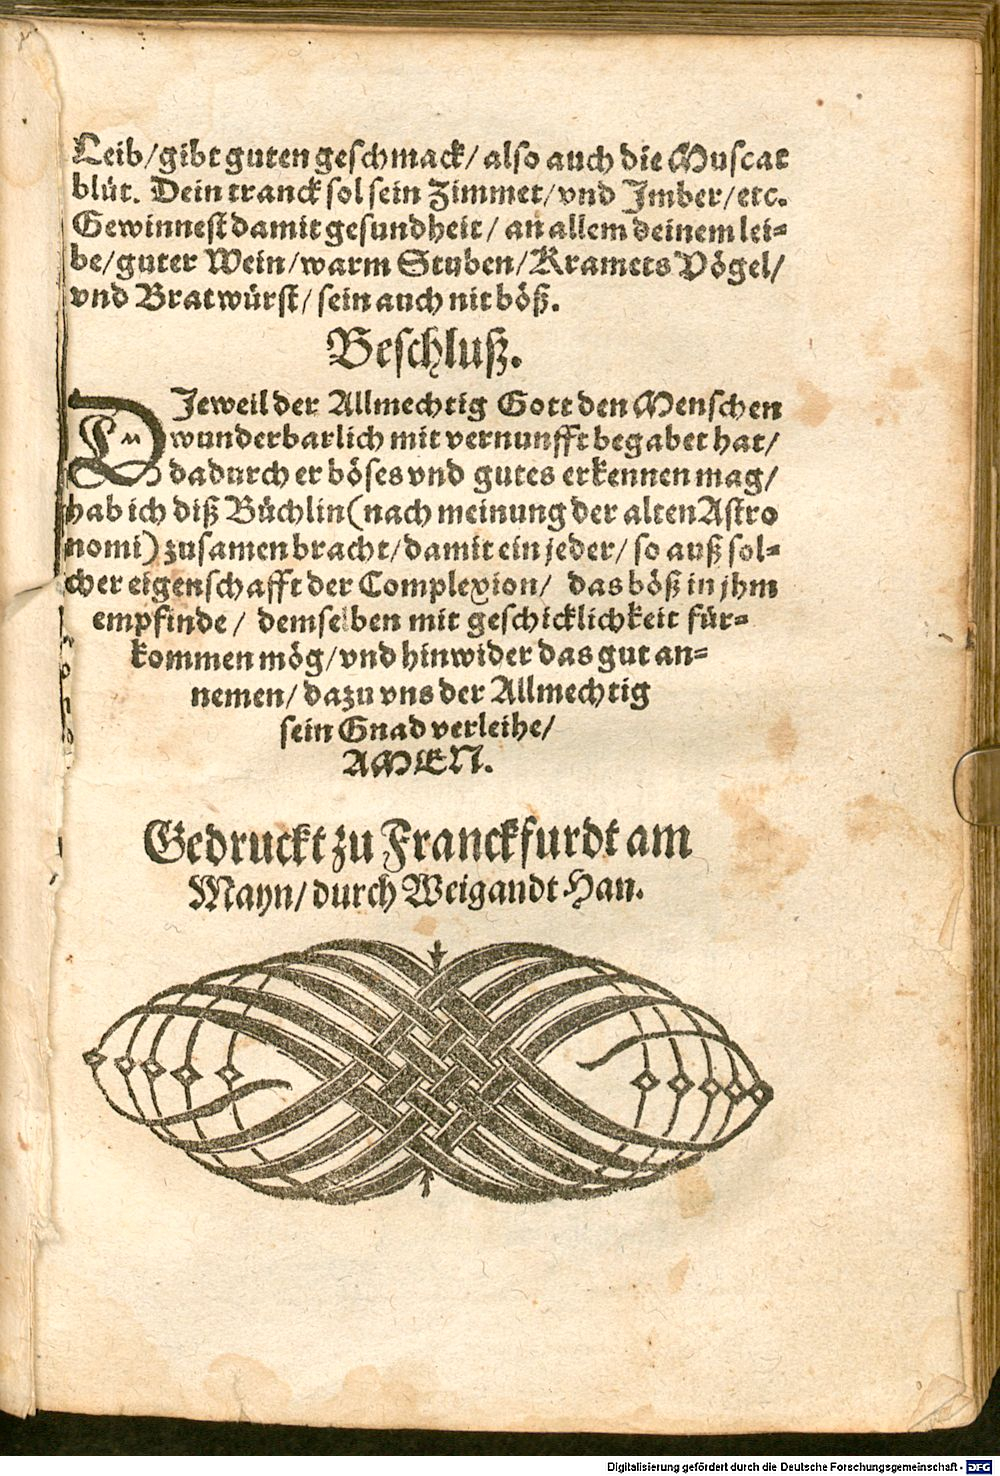 Leib/gibt guten geschmack/ also auch die Muscat
blüt. Dein tranck sol sein Zimmet/ vnd Imber/ etc.
Gewinnest damit gesundheit/ an allem deinem lei-
be/ guter Wein/ warm Stuben/ Kramets Vögel/
vnd Bratwürst/ sein auch nit böß.
Beschluß.
DJeweil der Allmechtig Gott den Menschen
wunderbarlich mit vernunfft begabet hat/
dadurch er böses vnd gutes erkennen mag/
hab ich diß Büchlin (nach meinung der alten Astro
nomi) zusamen bracht/ damit ein jeder/ so auß sol-
cher eigenschafft der Complexion/ das böß in jhm
empfinde/ demselben mit geschicklichkeit für-
kommen mög/ vnd hinwider das gut an-
nemen/ dazu vns der Allmechtig
sein Gnad verleihe/
AMEN.
Gedruckt zu Franckfurdt am
Mayn/ durch Weigandt Han.
Digitalisierung gefördert durch die Deutsche Forschungsgemeinschaft - DFG